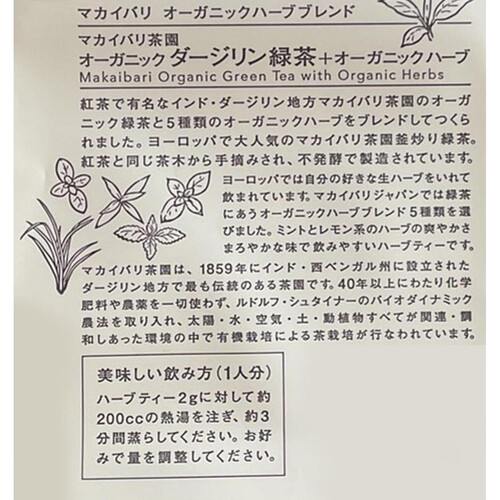 マカイバリ オーガニックハーブブレンド
マカイバリ茶園
オーガニック ダージリン緑茶＋オーガニックハーブ
Makaibari Organic Green Tea with Organic Herbs
紅茶で有名なインド・ダージリン地方マカイバリ茶園のオーガ
ニック緑茶と5種類のオーガニックハーブをブレンドしてつくら
れました。ヨーロッパで大人気のマカイバリ茶園釜炒り緑茶。
紅茶と同じ茶木から手摘みされ、不発酵で製造されています。
ヨーロッパでは自分の好きな生ハーブをいれて
飲まれています。マカイバリジャパンでは緑茶
にあうオーガニックハーブブレンド5種類を選
びました。ミントとレモン系のハーブの爽やかさ
まろやかな味で飲みやすいハーブティーです。
マカイバリ茶園は、1859年にインド・西ベンガル州に設立された
ダージリン地方で最も伝統のある茶園です。40年以上にわたり化学
肥料や農薬を一切使わず、ルドルフ・シュタイナーのバイオダイナミック
農法を取り入れ、太陽・水・空気・土・動植物すべてが関連・調
和しあった環境の中で有機栽培による茶栽培が行なわれています。
美味しい飲み方（1人分）
ハーブティー2gに対して約
200ccの熱湯を注ぎ、約3
分間蒸らしてください。お好
みで量を調整してください。